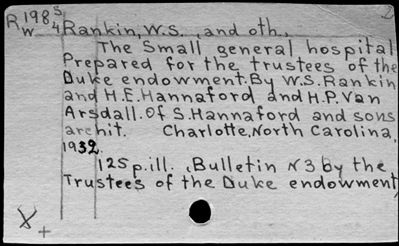 R 1985 Rankin, W.S. , and oth.,
W 4
The Small general hospital
Prepared for the trustees of the
Duke endowment. By W.S. Rankin
and H.E. Hannaford and H.P. Van
Arsdall. Of S. Hannaford and sons
archit. Charlotte, North Carolina,
1932.
125 p. ill. , Bulletin N3 by the
Trustees of the Duke endowment,